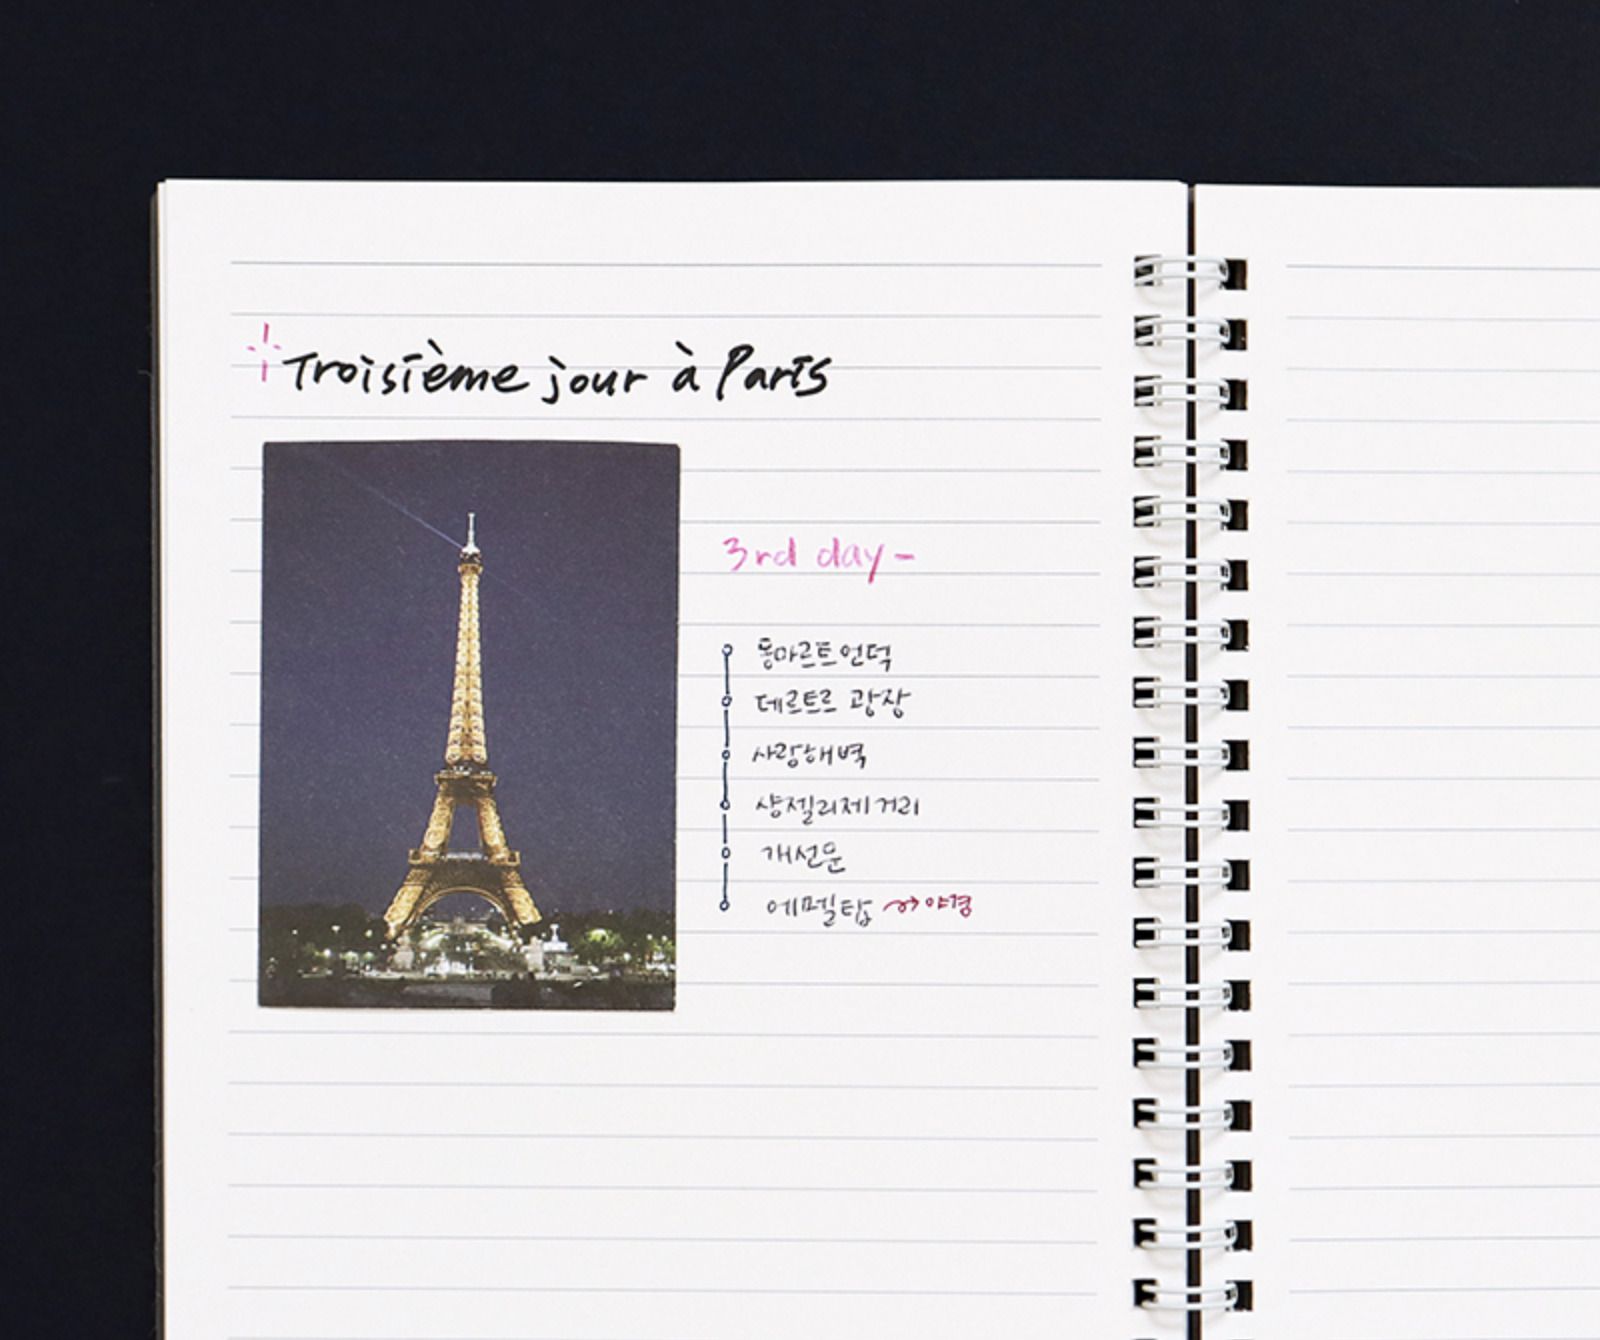 Troisième jour à Paris
3rd day-
몽마르트 언덕
테르트르 광장
사랑해벽
샹젤리제 거리
개선문
에펠탑 → 야경